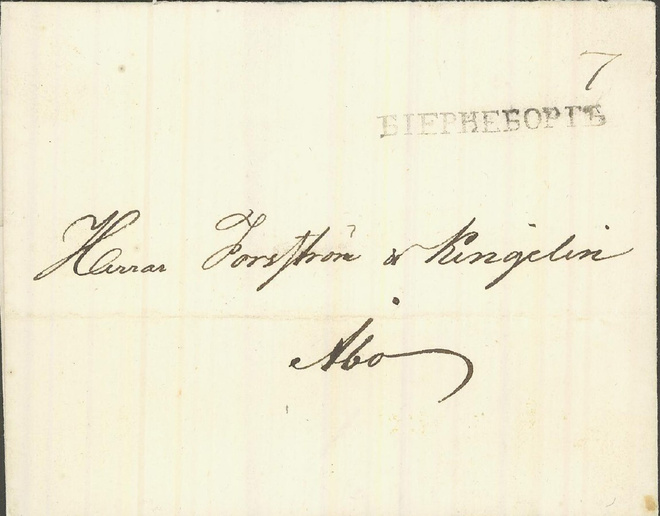 7
БІЕРНЕБОРГЪ
Herrar Forsström & Ringelin
Åbo